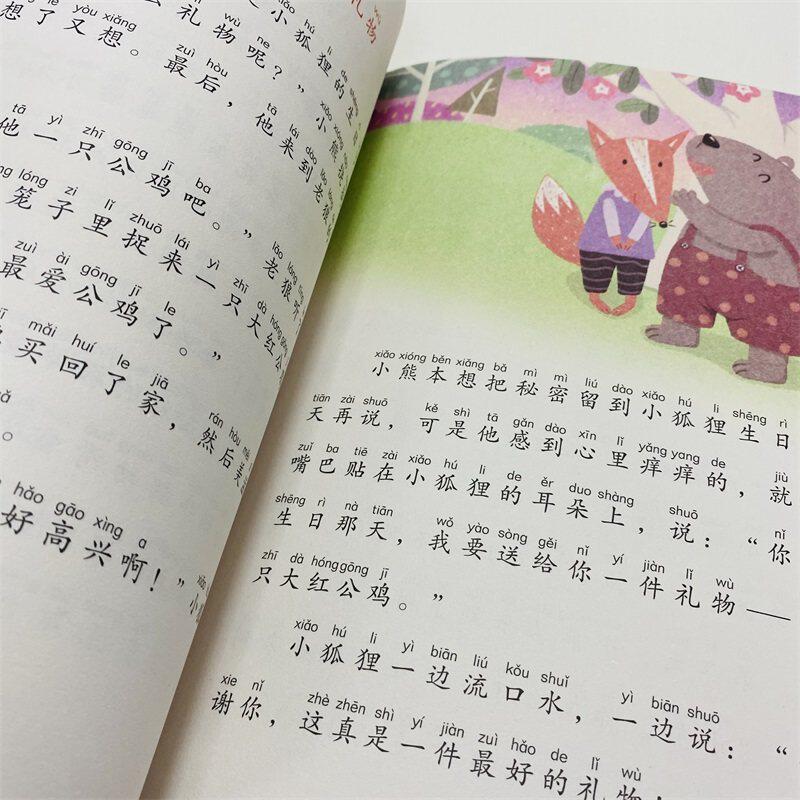 礼物
想了又想。最后，他来到老狼
么礼物呢？”小熊
小狐狸的生
他一只公鸡吧。”老狼
笼子里捉来一只大红公
最爱公鸡了。”
买回了家，然后美
好高兴啊！”小
xiǎo xióng běn xiǎng bǎ mì mì liú dào xiǎo hú li shēng rì
小熊本想把秘密留到小狐狸生日
tiān zài shuō kě shì tā gǎn dào xīn lǐ yǎng yang de jiù
天再说，可是他感到心里痒痒的，就
zuǐ ba tiē zài xiǎo hú li de ěr duo shàng shuō nǐ
嘴巴贴在小狐狸的耳朵上，说：“你
shēng rì nà tiān wǒ yào sòng gěi nǐ yí jiàn lǐ wù
生日那天，我要送给你一件礼物——
zhī dà hóng gōng jī
只大红公鸡。”
xiǎo hú li yì biān liú kǒu shuǐ yì biān shuō
小狐狸一边流口水，一边说：“
xie nǐ zhè zhēn shì yí jiàn zuì hǎo de lǐ wù
谢你，这真是一件最好的礼物